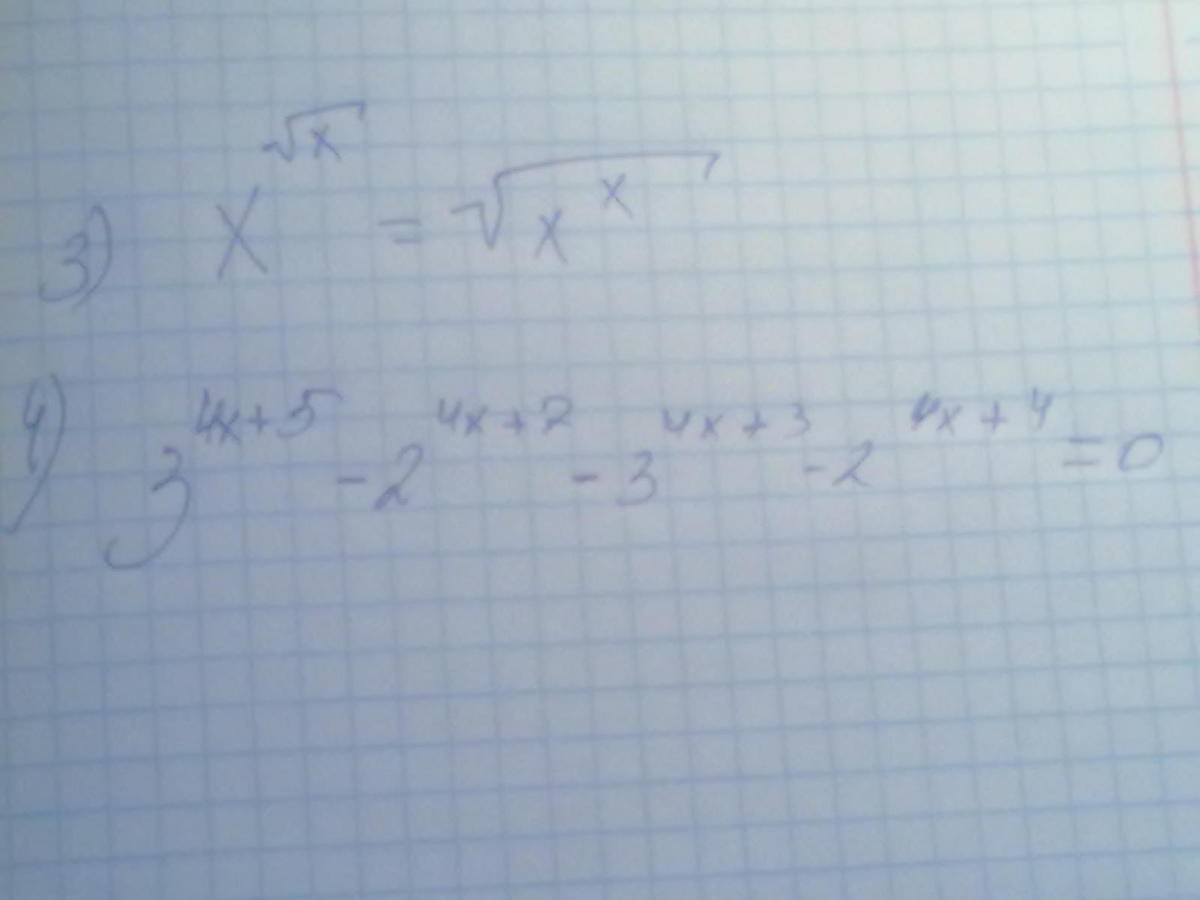 3) x^√x = √(x^x)
4) 3^(4x+5) - 2^(4x+7) - 3^(4x+3) - 2^(4x+4) = 0